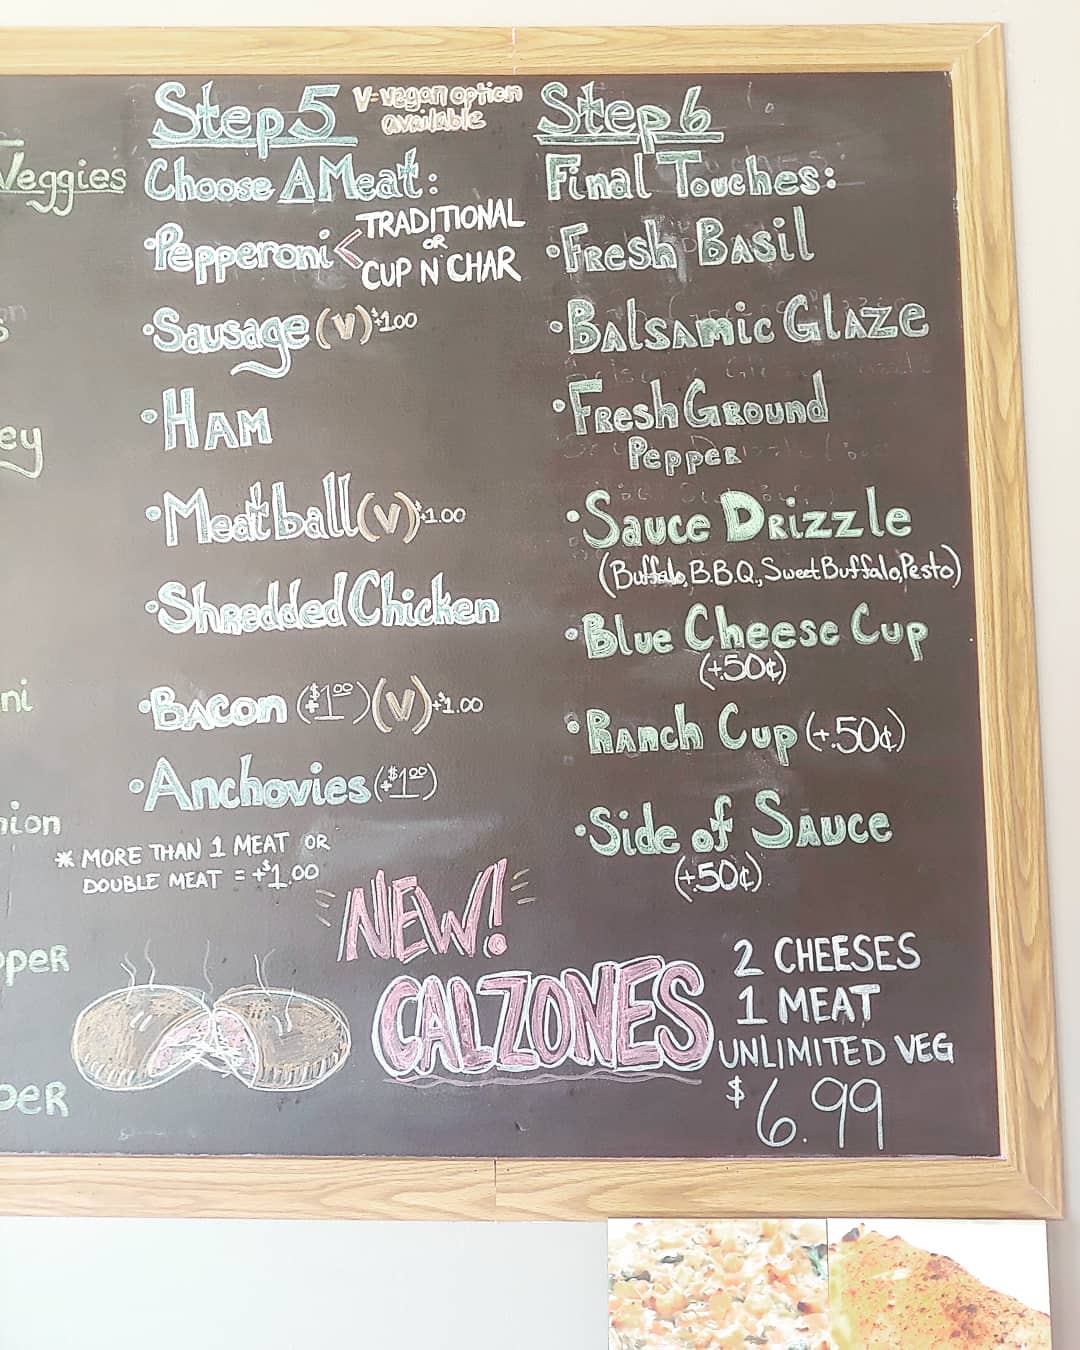 Veggies
ey
ni
nion
pper
per
Step 5
V=vegan option
available
Choose A Meat:
•Pepperoni < TRADITIONAL
OR
CUP N' CHAR
•Sausage (V) +$1.00
•HAM
•Meatball (V) +$1.00
•Shredded Chicken
•BACON (+$1.00) (V) +$1.00
•Anchovies (+$1.00)
* MORE THAN 1 MEAT OR
DOUBLE MEAT = +$1.00
Step 6
Final Touches:
•Fresh Basil
•Balsamic Glaze
•Fresh Ground
Pepper
•Sauce Drizzle
(Buffalo, B.B.Q., Sweet Buffalo, Pesto)
•Blue Cheese Cup
(+.50¢)
•Ranch Cup (+.50¢)
•Side of Sauce
(+.50¢)
NEW!
CALZONES
2 CHEESES
1 MEAT
UNLIMITED VEG
$6.99